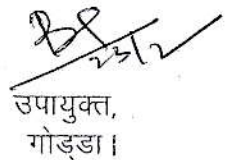 23/2
उपायुक्त,
गोड्डा।